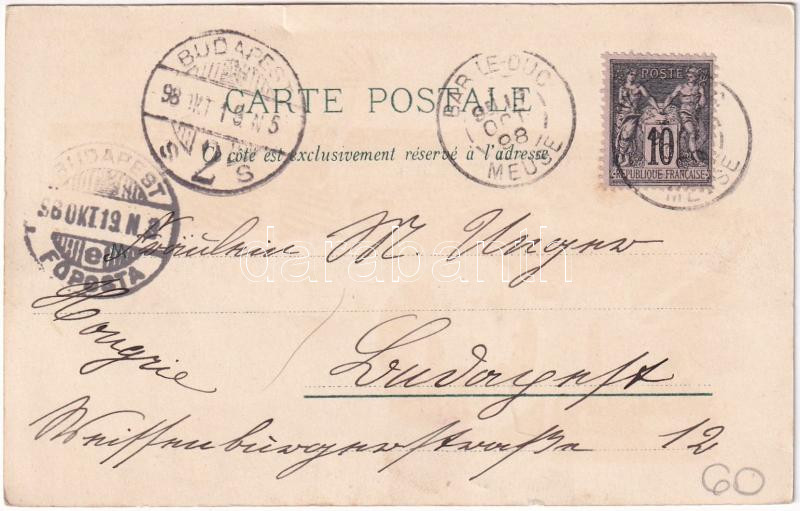 CARTE POSTALE
Ce côté est exclusivement réservé à l'adresse
BUDAPEST
98 OKT 19 N 5
7
S S
BAR-LE-DUC
OCT
98
MEUSE
POSTE
10
REPUBLIQUE FRANÇAISE
MEUSE
BUDAPEST
98 OKT. 19. N. 2
e
FŐPOSTA
Fräulein M. Unger
Hongrie
Budapest
Weissenburgerstraße 12
60
darabanth